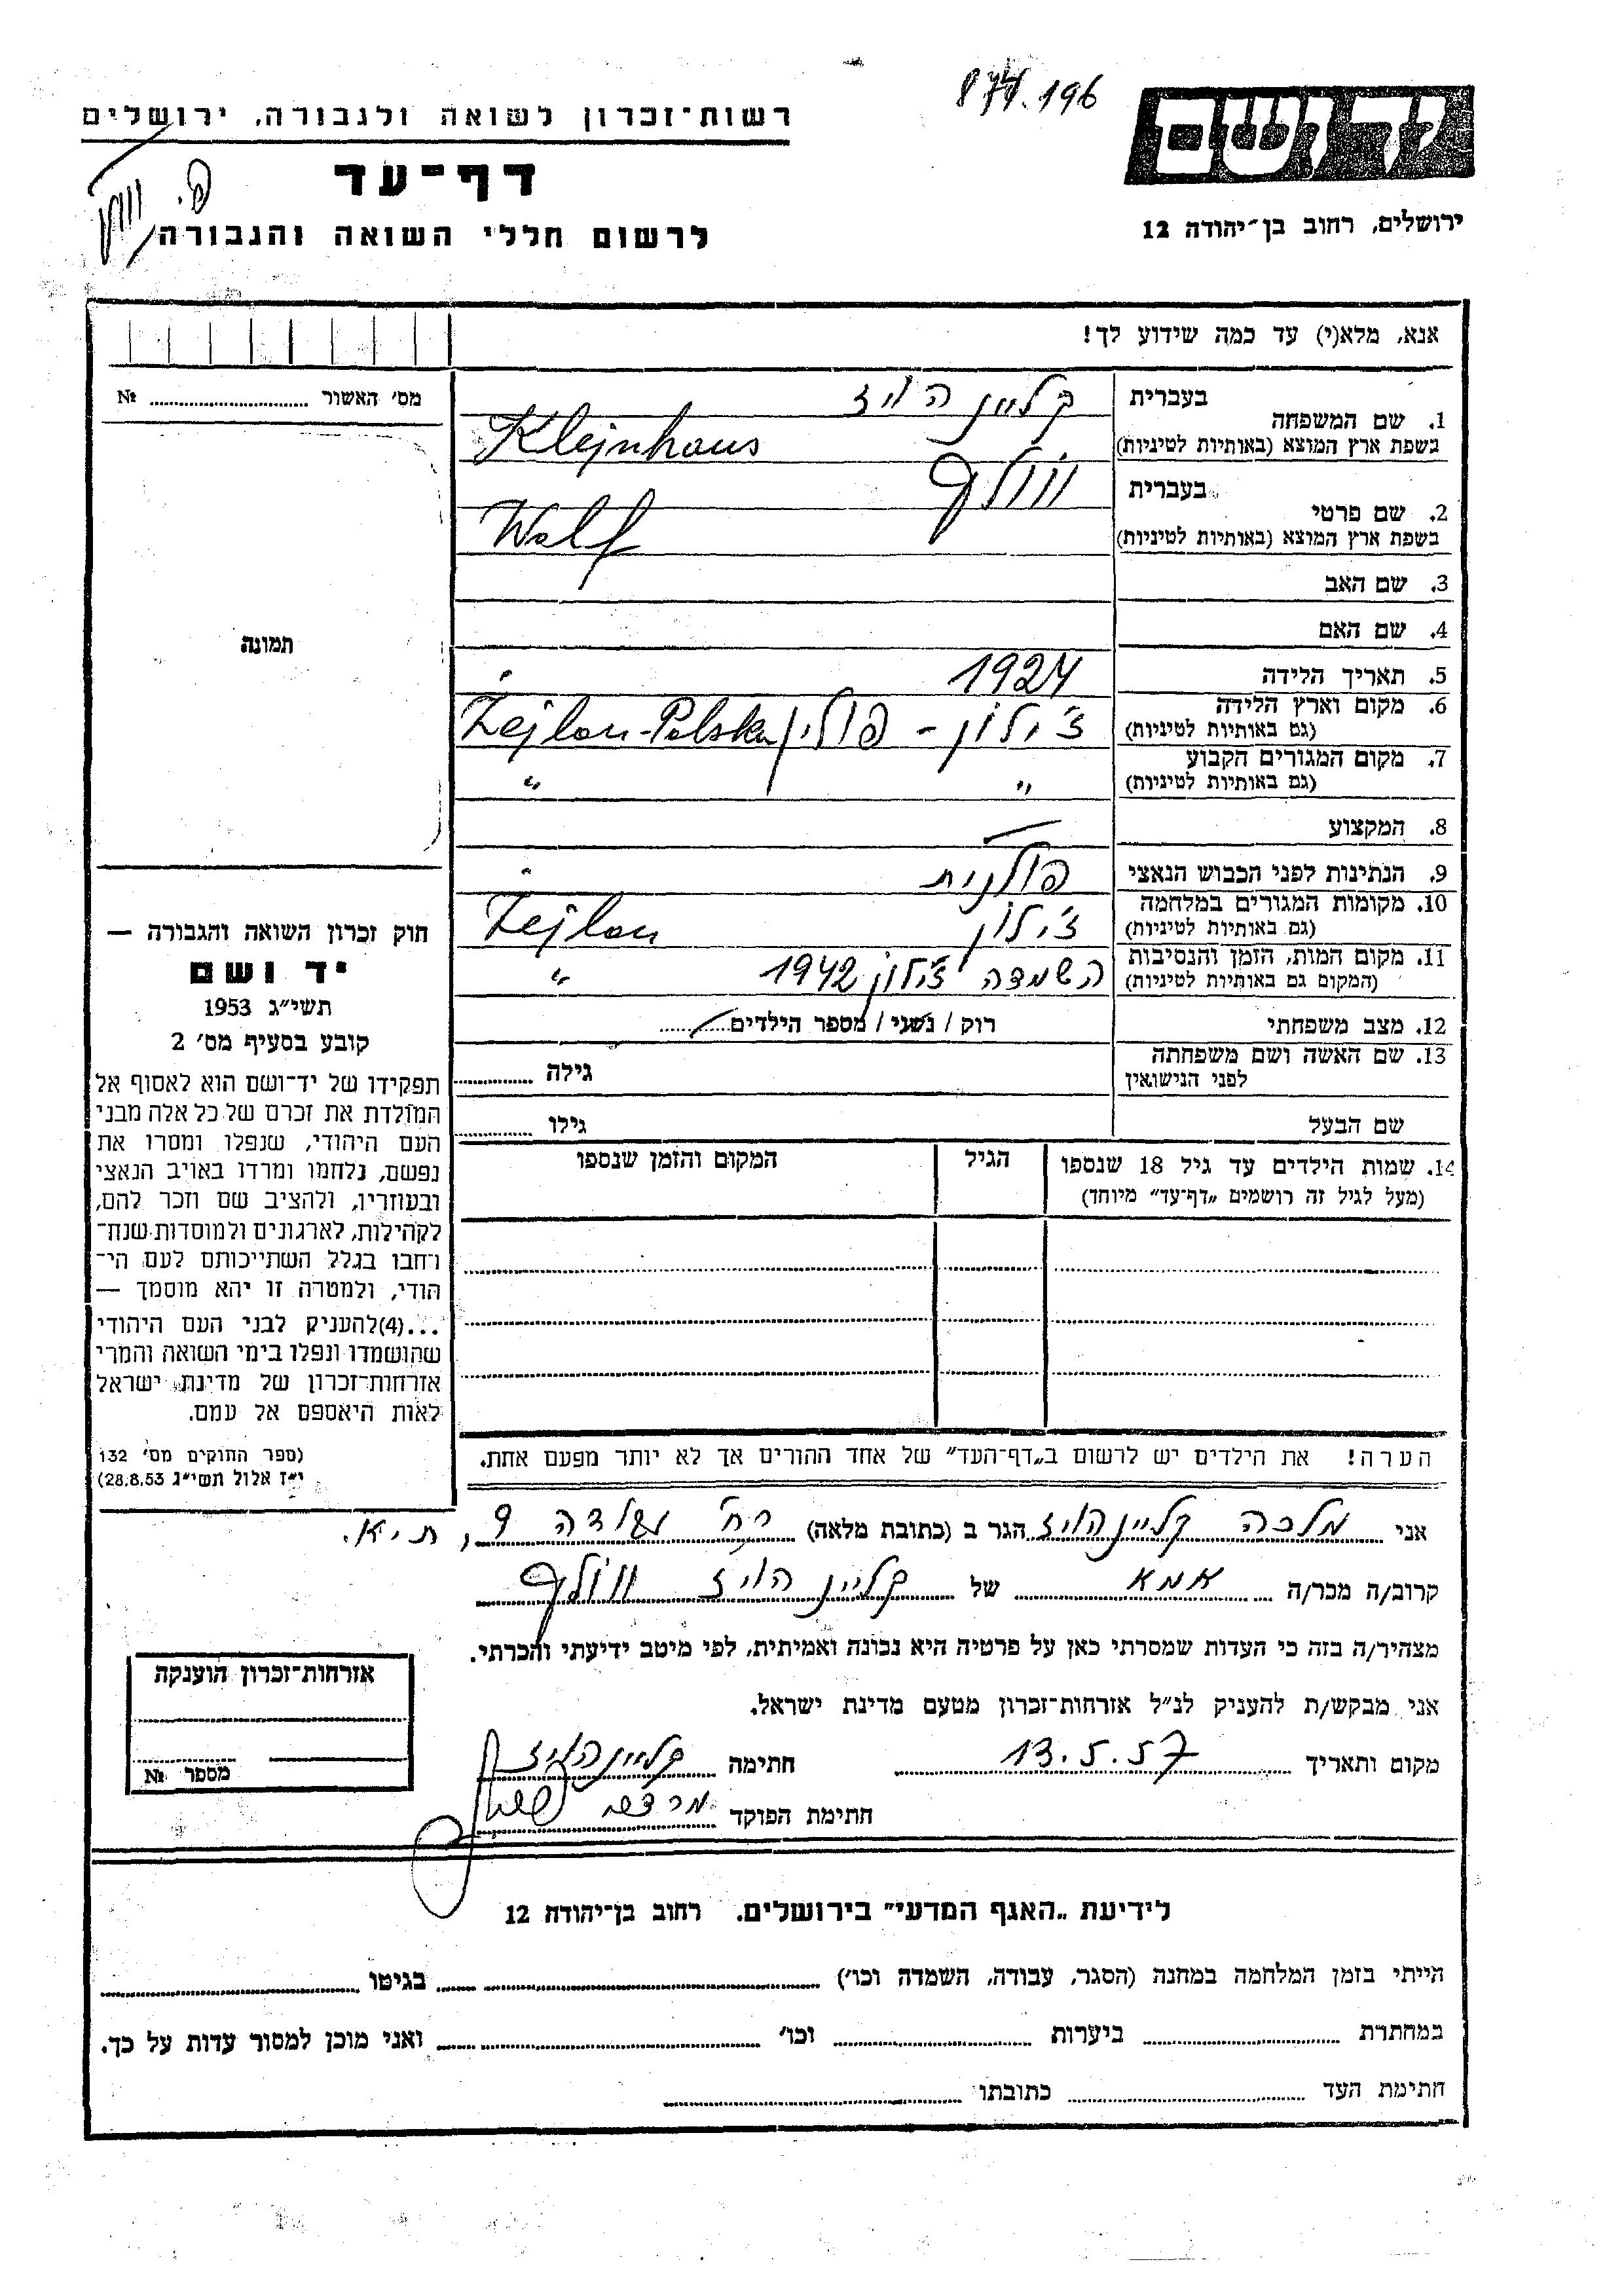 196
רשות־זכרון לשואה ולגבורה, ירושלים
דף־עד
לרשום חללי השואה והגבורה
ירושלים, רחוב בן־יהודה 12
אנא, מלא(י) עד כמה שידוע לך!
מס׳ האשור № ..........
תמונה
בעברית קליין הויז
1. שם המשפחה
בשפת ארץ המוצא (באותיות לטיניות) Klejnhaus
בעברית וולף
2. שם פרטי
בשפת ארץ המוצא (באותיות לטיניות) Wolf
3. שם האב
4. שם האם
5. תאריך הלידה 1924
6. מקום וארץ הלידה צ׳ילון - פולין Zejlon-Polska
(גם באותיות לטיניות)
7. מקום המגורים הקבוע
(גם באותיות לטיניות) " "
8. המקצוע —
9. הנתינות לפני הכבוש הנאצי פולנית
10. מקומות המגורים במלחמה צ׳ילון Zejlon
(גם באותיות לטיניות)
11. מקום המות, הזמן והנסיבות השמדה צ׳ילון 1942 "
(המקום גם באותיות לטיניות)
12. מצב משפחתי רוק / נשוי / מספר הילדים ..........
13. שם האשה ושם משפחתה
לפני הנישואין גילה ..........
שם הבעל גילו ..........
14. שמות הילדים עד גיל 18 שנספו הגיל המקום והזמן שנספו
(מעל לגיל זה רושמים „דף־עד” מיוחד)
הערה! את הילדים יש לרשום ב„דף־העד” של אחד ההורים אך לא יותר מפעם אחת.
חוק זכרון השואה והגבורה —
יד ושם
תשי״ג 1953
קובע בסעיף מס׳ 2
תפקידו של יד־ושם הוא לאסוף אל
המולדת את זכרם של כל אלה מבני
העם היהודי, שנפלו ומסרו את
נפשם, נלחמו ומרדו באויב הנאצי
ובעוזריו, ולהציב שם וזכר להם,
לקהילות, לארגונים ולמוסדות שנח־
רבו בגלל השתייכותם לעם הי־
הודי, ולמטרה זו יהא מוסמך —
...(4) להעניק לבני העם היהודי
שהושמדו ונפלו בימי השואה והמרי
אזרחות־זכרון של מדינת ישראל
לאות היאספם אל עמם.
(ספר החוקים מס׳ 132
י״ז אלול תשי״ג 28.8.53)
אני מלכה קליינהויז הגר ב (כתובת מלאה) רח׳ 9, ת.י.א.
קרוב/ה מכר/ה אמא של קליין הויז וולף
מצהיר/ה בזה כי העדות שמסרתי כאן על פרטיה היא נכונה ואמיתית, לפי מיטב ידיעתי והכרתי.
אני מבקש/ת להעניק לנ״ל אזרחות־זכרון מטעם מדינת ישראל.
מקום ותאריך 13.5.57 חתימה קליינהויז
חתימת הפוקד
אזרחות־זכרון הוענקה
מספר №
לידיעת „האגף המדעי” בירושלים, רחוב בן־יהודה 12
הייתי בזמן המלחמה במחנה (הסגר, עבודה, השמדה וכו׳) .......... בגיטו ..........
במחתרת .......... ביערות .......... וכו׳ .......... ואני מוכן למסור עדות על כך.
חתימת העד .......... כתובתו ..........